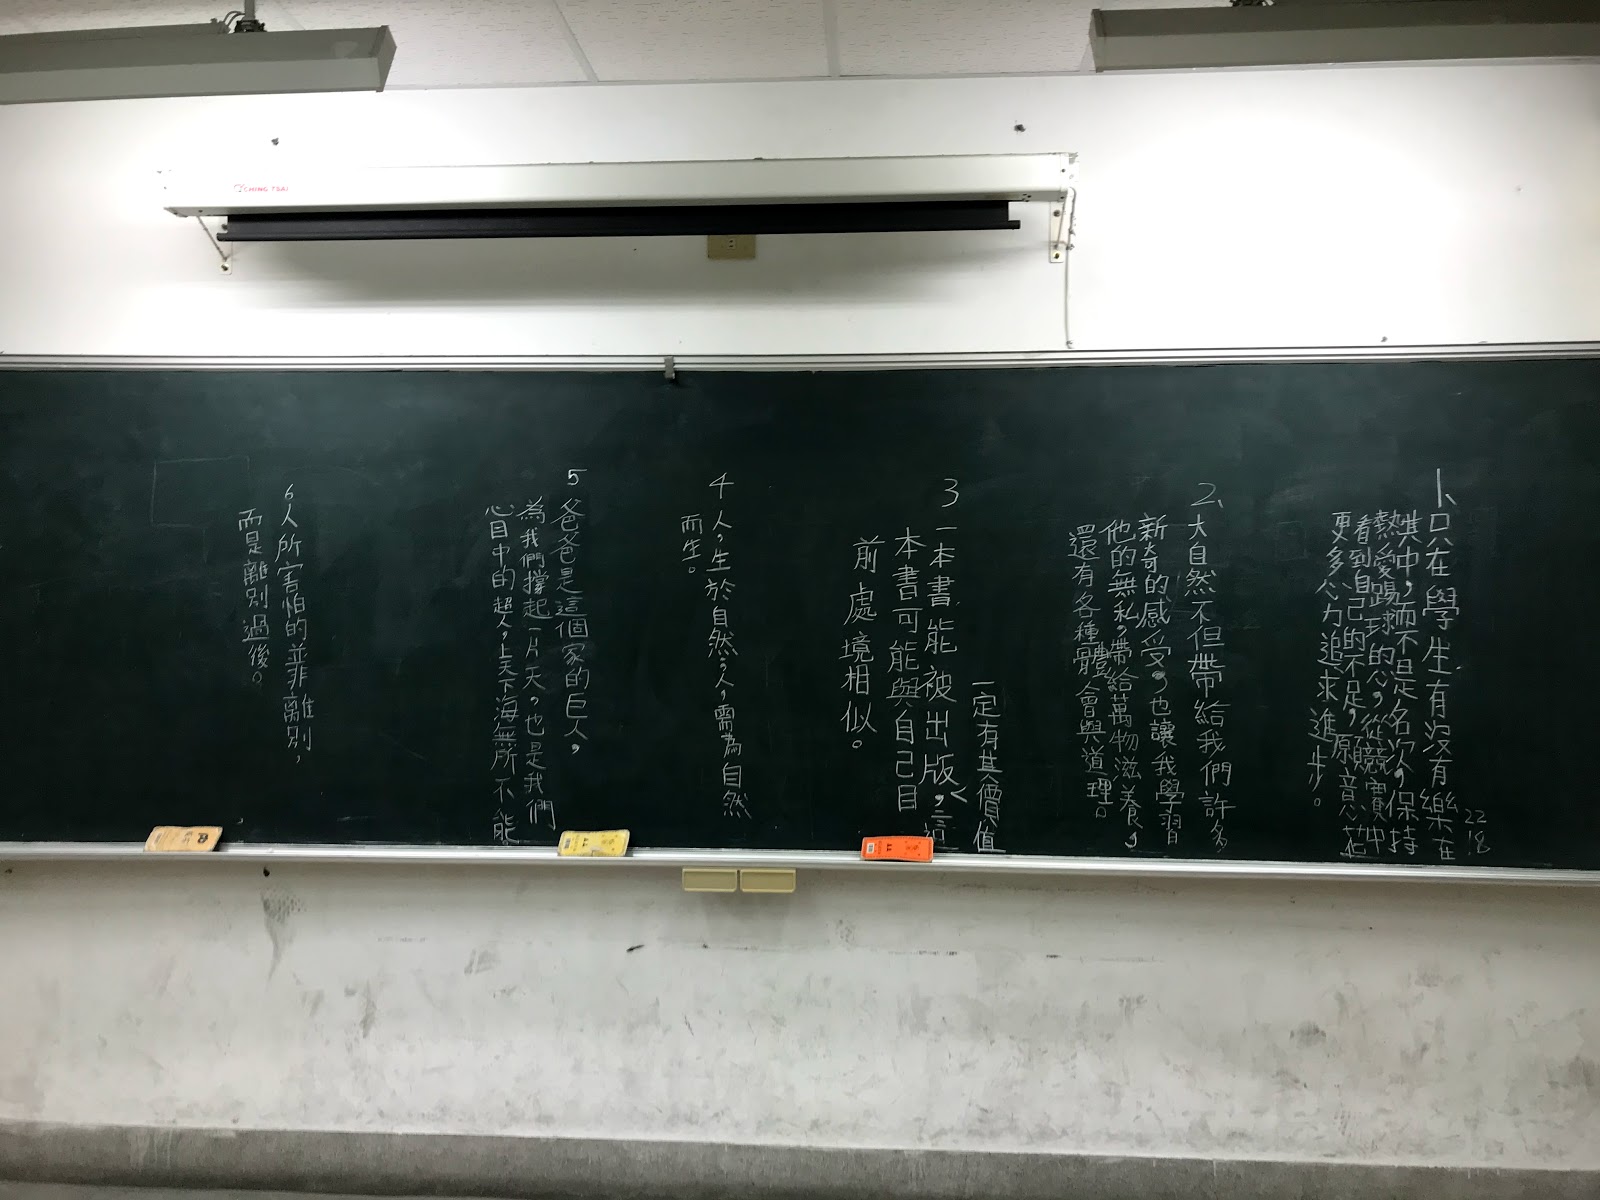 CHING TSAI
22
18
1、只在學生有沒有樂在
其中，而不是名次，保持
熱愛踢球的心，從競賽中
看到自己的不足，願意花
更多心力追求進步。
2、大自然不但帶給我們許多
新奇的感受，也讓我學習
他的無私，帶給萬物滋養，
還有各種體會與道理。
3 一本書能被出版，這
一定有其價值
本書可能與自己目
前處境相似。
4 人，生於自然；人，需為自然
而生。
5 爸爸是這個家的巨人，
為我們撐起一片天，也是我們
心目中的超人，上天下海無所不能
6 人所害怕的並非離別，
而是離別過後。